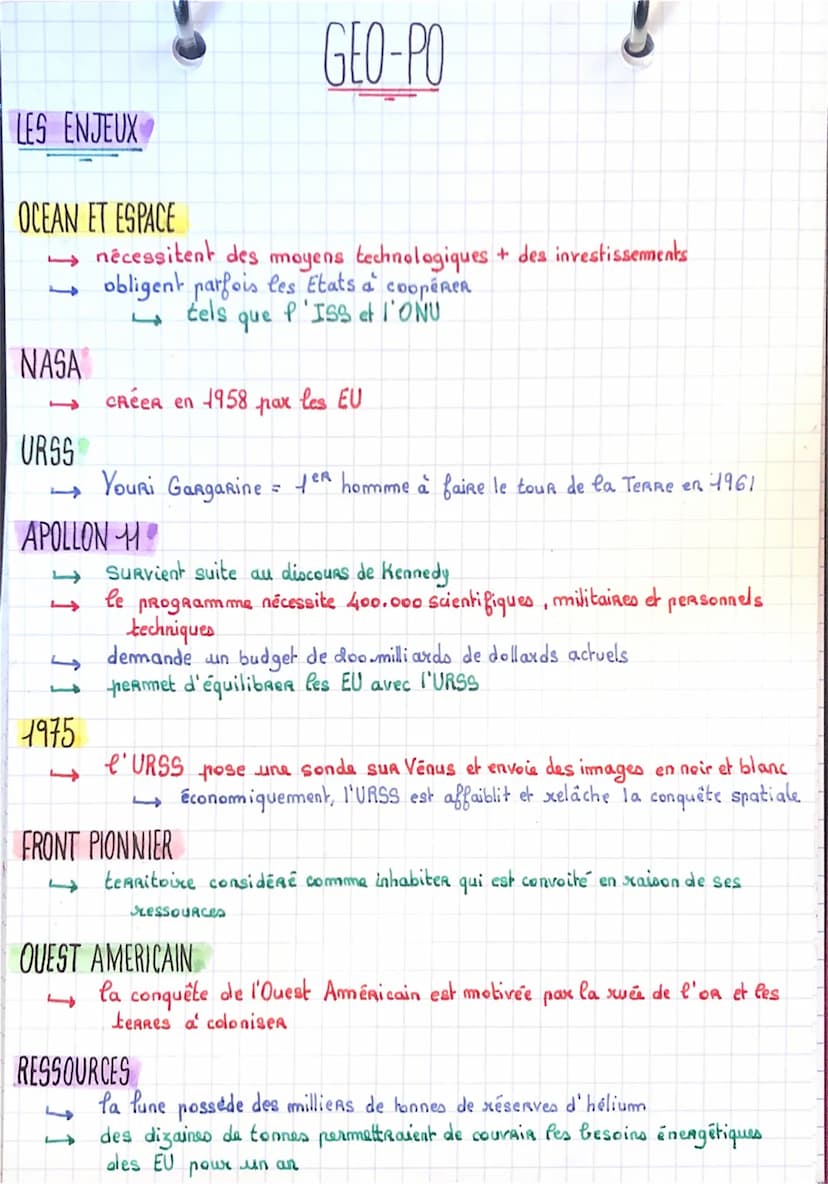 GEO-PO
LES ENJEUX
OCEAN ET ESPACE
↳ nécessitent des moyens technologiques + des investissements
↳ obligent parfois les Etats à coopérer
↳ tels que l'ISS et l'ONU
NASA
↳ créer en 1958 par les EU
URSS
↳ Youri Gargarine = 1er homme à faire le tour de la Terre en 1961
APOLLON 11
↳ survient suite au discours de Kennedy
↳ le programme nécessite 400.000 scientifiques, militaires et personnels
techniques
↳ demande un budget de 200 milliards de dollards actuels
↳ permet d'équilibrer les EU avec l'URSS
1975
↳ l'URSS pose une sonde sur Vénus et envoie des images en noir et blanc
↳ économiquement, l'URSS est affaiblit et relâche la conquête spatiale
FRONT PIONNIER
↳ territoire considéré comme inhabiter qui est convoité en raison de ses
ressources
OUEST AMERICAIN
↳ la conquête de l'Ouest Américain est motivée par la ruée de l'or et les
terres à coloniser
RESSOURCES
↳ la lune possède des milliers de tonnes de réserves d'hélium
↳ des dizaines de tonnes permettraient de couvrir les besoins énergétiques
des EU pour un an